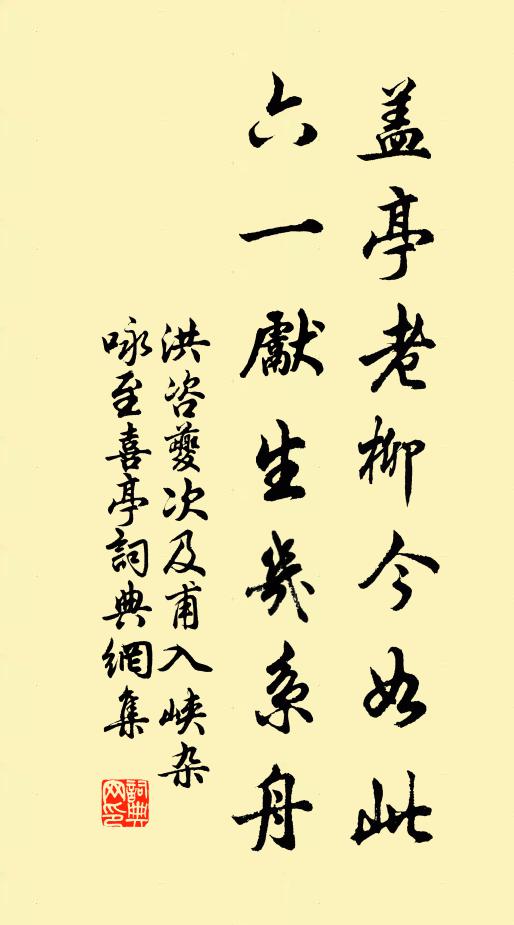 盖亭老柳今如此
六一獻生幾系舟
洪咨夔次及甫入峽杂
咏至喜亭詞典網集
詞典网印